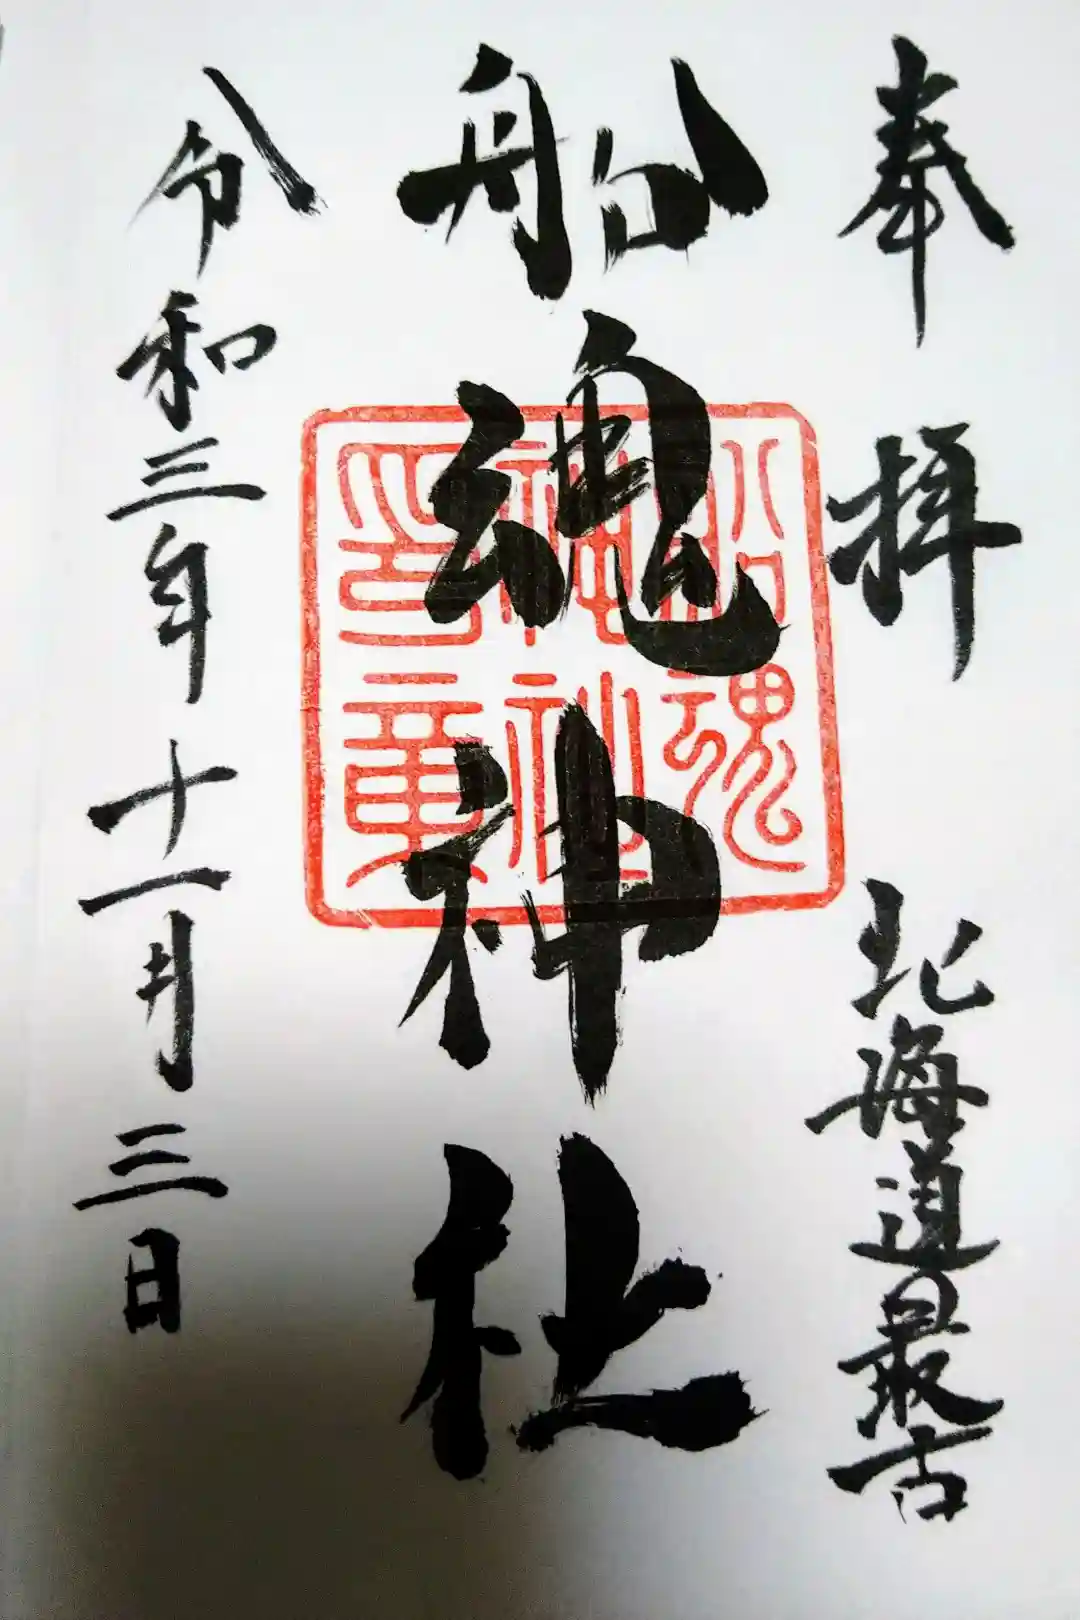 奉拝 北海道最古
船魂神社
船魂
神社
印章
令和三年十一月三日